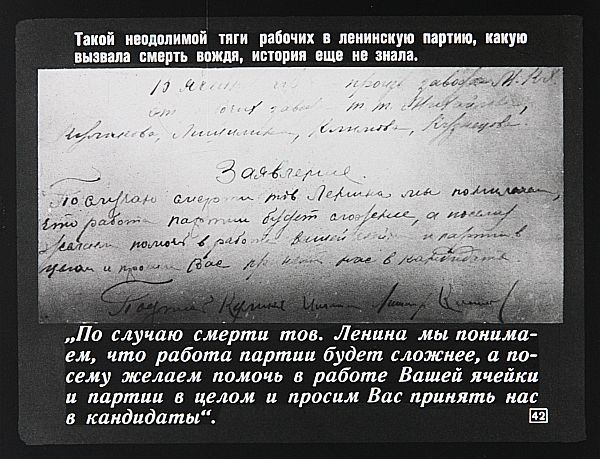 Такой неодолимой тяги рабочих в ленинскую партию, какую
вызвала смерть вождя, история еще не знала.
завода
Кулакова, Кузнецова
Заявление
По случаю смерти тов Ленина мы понимаем,
что работа партии будет сложнее, а посему
желаем помочь в работе Вашей ячейки и партии в
целом и просим Вас принять нас в кандидаты
„По случаю смерти тов. Ленина мы понима-
ем, что работа партии будет сложнее, а по-
сему желаем помочь в работе Вашей ячейки
и партии в целом и просим Вас принять нас
в кандидаты“.
42